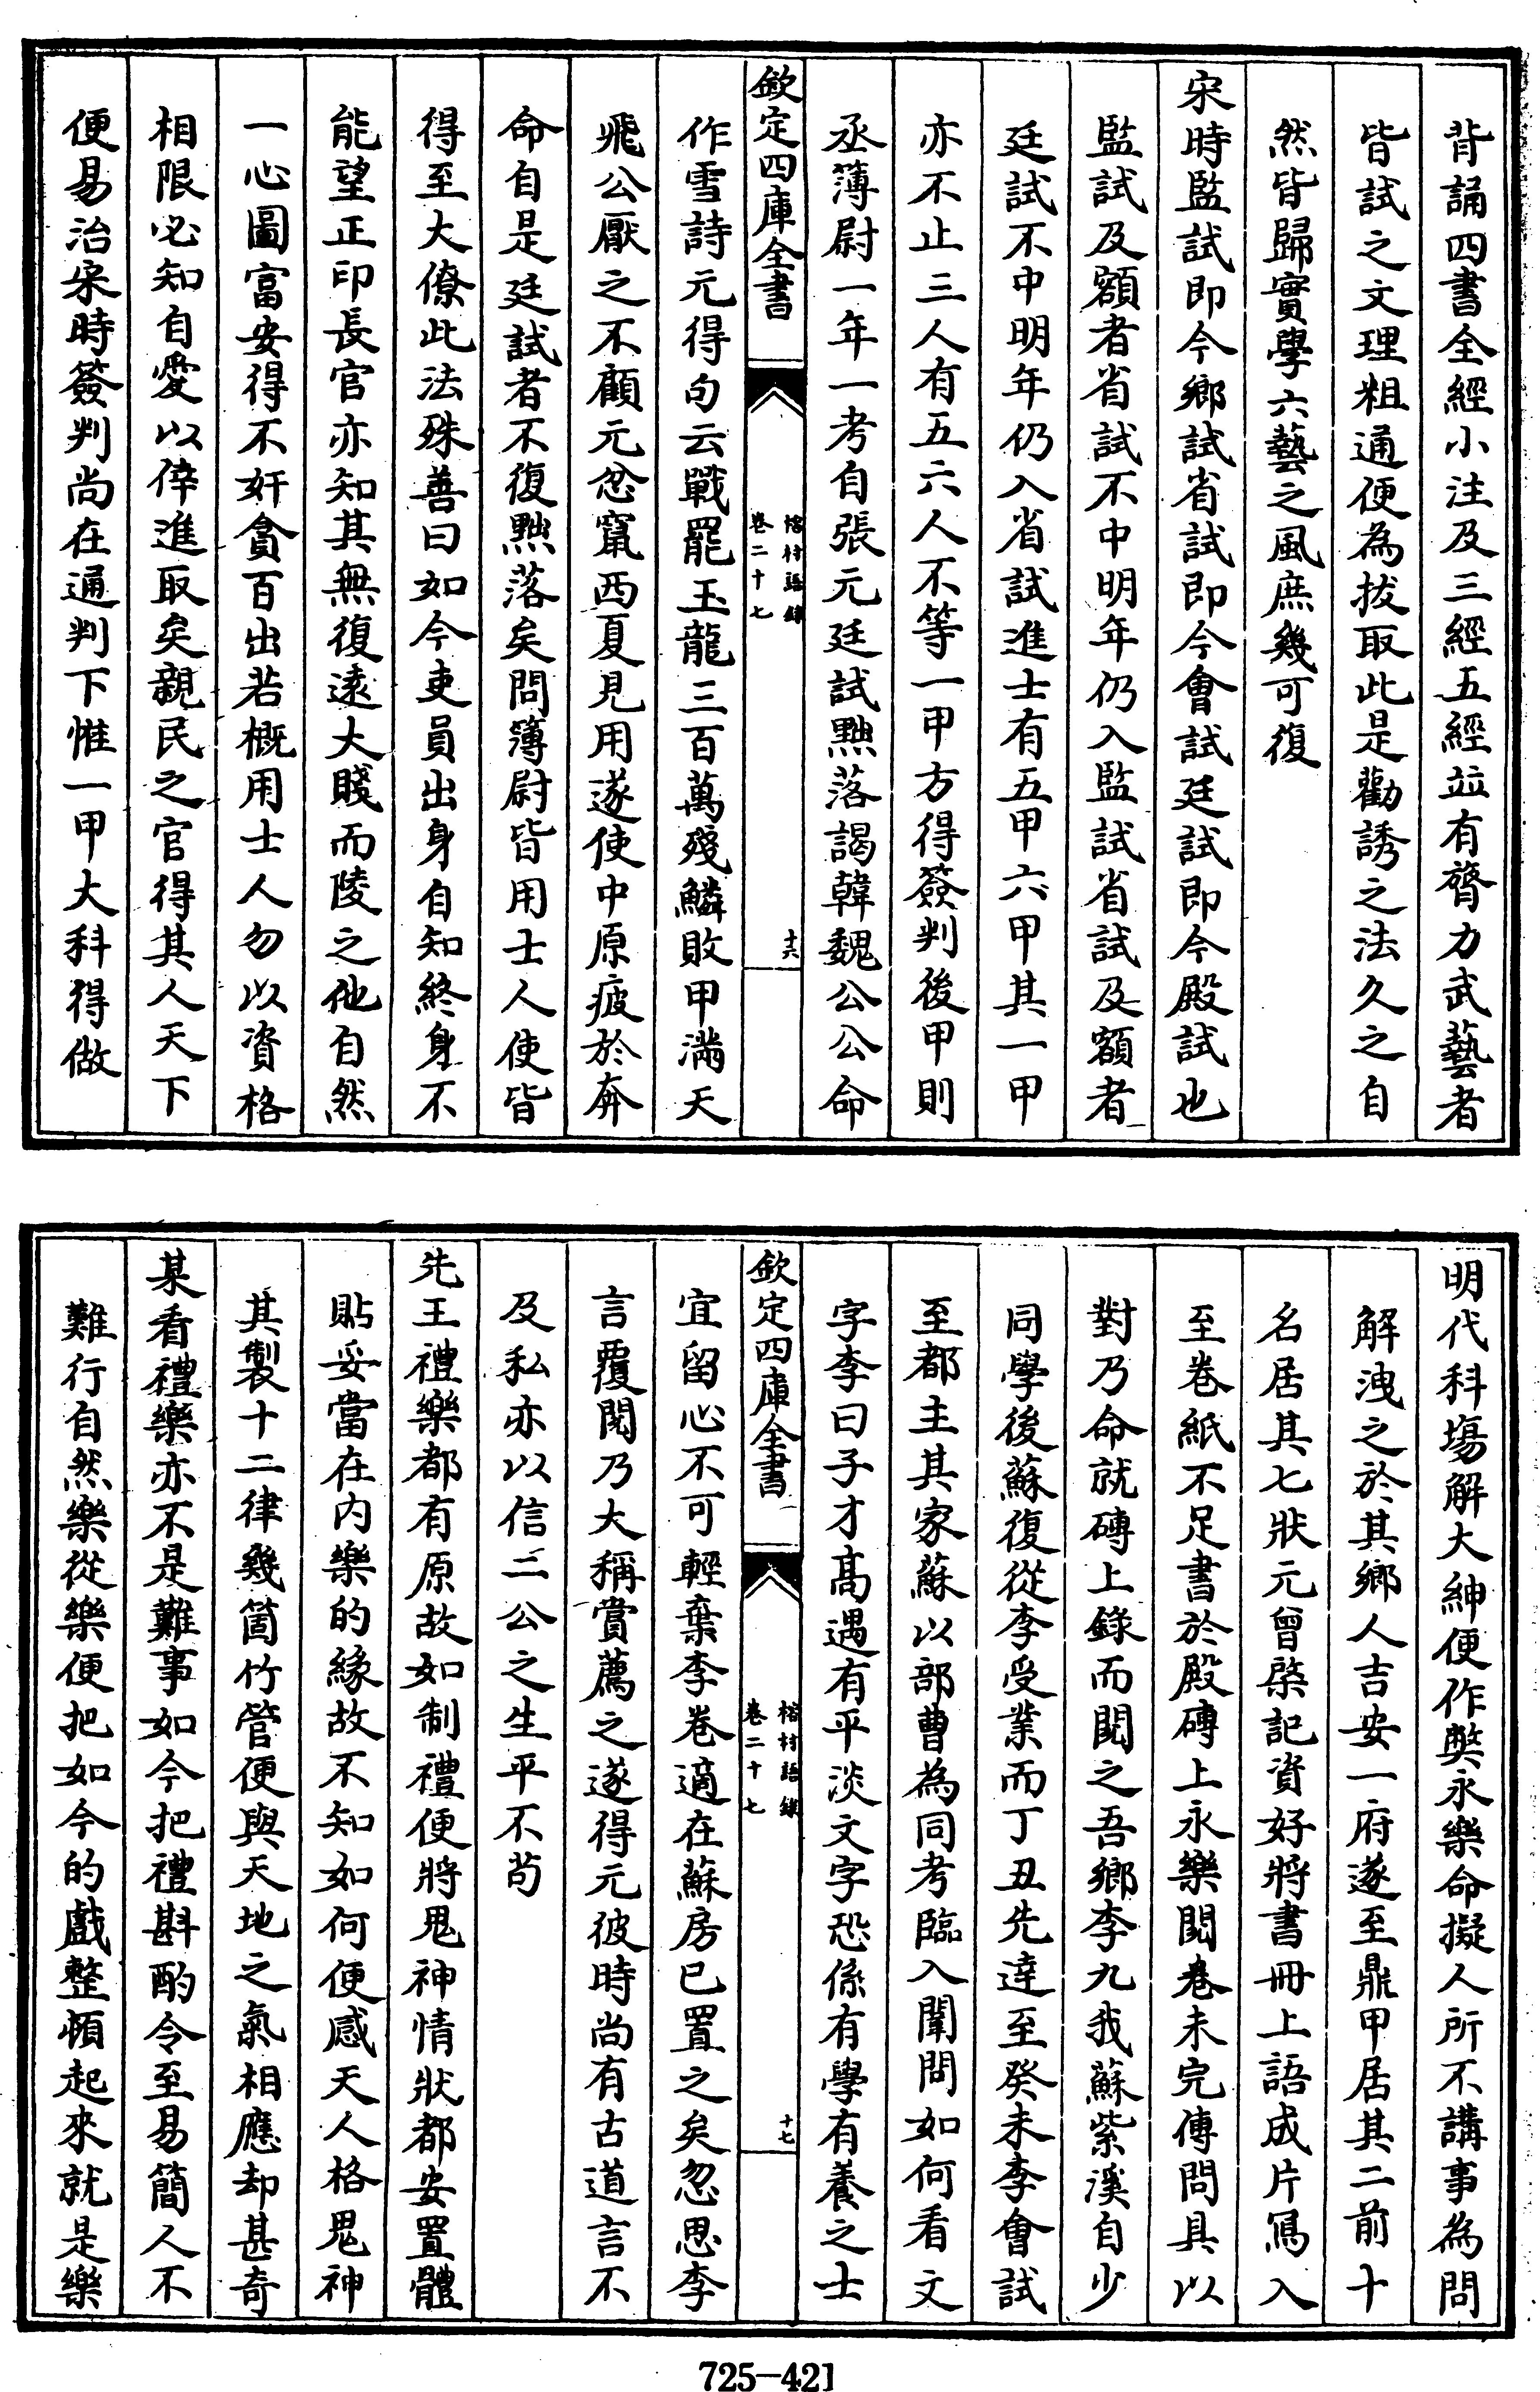 背誦四書全經小注及三經五經竝有膂力武藝者
皆試之文理粗通便為拔取此是勸誘之法久之自
然皆歸實學六藝之風庶幾可復
宋時監試即今鄉試省試即今會試廷試即今殿試也
監試及額者省試不中明年仍入監試省試及額者
廷試不中明年仍入省試進士有五甲六甲其一甲
亦不止三人有五六人不等一甲方得簽判後甲則
丞簿尉一年一考自張元廷試黜落謁韓魏公公命
欽定四庫全書
榕村語錄
卷二十七
十六
作雪詩元得句云戰罷玉龍三百萬殘鱗敗甲滿天
飛公厭之不顧元忿竄西夏見用遂使中原疲於奔
命自是廷試者不復黜落矣問簿尉皆用士人使皆
得至大僚此法殊善曰如今吏員出身自知終身不
能望正印長官亦知其無復遠大賤而陵之他自然
一心圖富安得不奸貪百出若概用士人勿以資格
相限必知自愛以倖進取矣親民之官得其人天下
便易治宋時簽判尚在通判下惟一甲大科得做
明代科塲解大紳便作弊永樂命擬人所不講事為問
解洩之於其鄉人吉安一府遂至鼎甲居其二前十
名居其七狀元曾棨記資好將書冊上語成片寫入
至卷紙不足書於殿磚上永樂閱卷未完傳問具以
對乃命就磚上錄而閱之吾鄉李九我蘇紫溪自少
同學後蘇復從李受業而丁丑先達至癸未李會試
至都主其家蘇以部曹為同考臨入闈問如何看文
字李曰子才高遇有平淡文字恐係有學有養之士
欽定四庫全書
榕村語錄
卷二十七
十七
宜留心不可輕棄李卷適在蘇房已置之矣忽思李
言覆閱乃大稱賞薦之遂得元彼時尚有古道言不
及私亦以信二公之生平不苟
先王禮樂都有原故如制禮便將鬼神情狀都安置體
貼妥當在內樂的緣故不知如何便感天人格鬼神
其製十二律幾箇竹管便與天地之氣相應却甚奇
某看禮樂亦不是難事如今把禮斟酌令至易簡人不
難行自然樂從樂便把如今的戲整頓起來就是樂
725-421